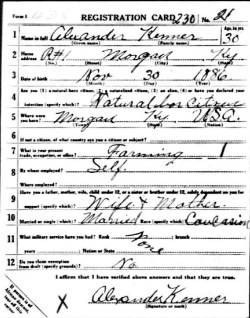 Form 1
REGISTRATION CARD 230 No. 21
1 Name in full Alexander Kenner Age, in yrs. 30
(Given name) (Family name)
2 Home address R#1 Morgan Ky
(No.) (Street) (City) (State)
3 Date of birth Nov 30 1886
(Month) (Day) (Year)
4 Are you (1) a natural-born citizen, (2) a naturalized citizen, (3) an alien, (4) or have you declared your
intention (specify which)? Natural born Citizen
5 Where were you born? Morgan Ky U.S.A.
(Town) (State) (Nation)
6 If not a citizen, of what country are you a citizen or subject?
7 What is your present trade, occupation, or office? Farming 1
8 By whom employed? Self
Where employed?
9 Have you a father, mother, wife, child under 12, or a sister or brother under 12, solely dependent on you for
support (specify which)? Wife & Mother
10 Married or single (which)? Married Race (specify which)? Caucasion
11 What military service have you had? Rank None ; branch
years ; Nation or State
12 Do you claim exemption from draft (specify grounds)? No
I affirm that I have verified above answers and that they are true.
X Alexander Kenner
(Signature or mark)